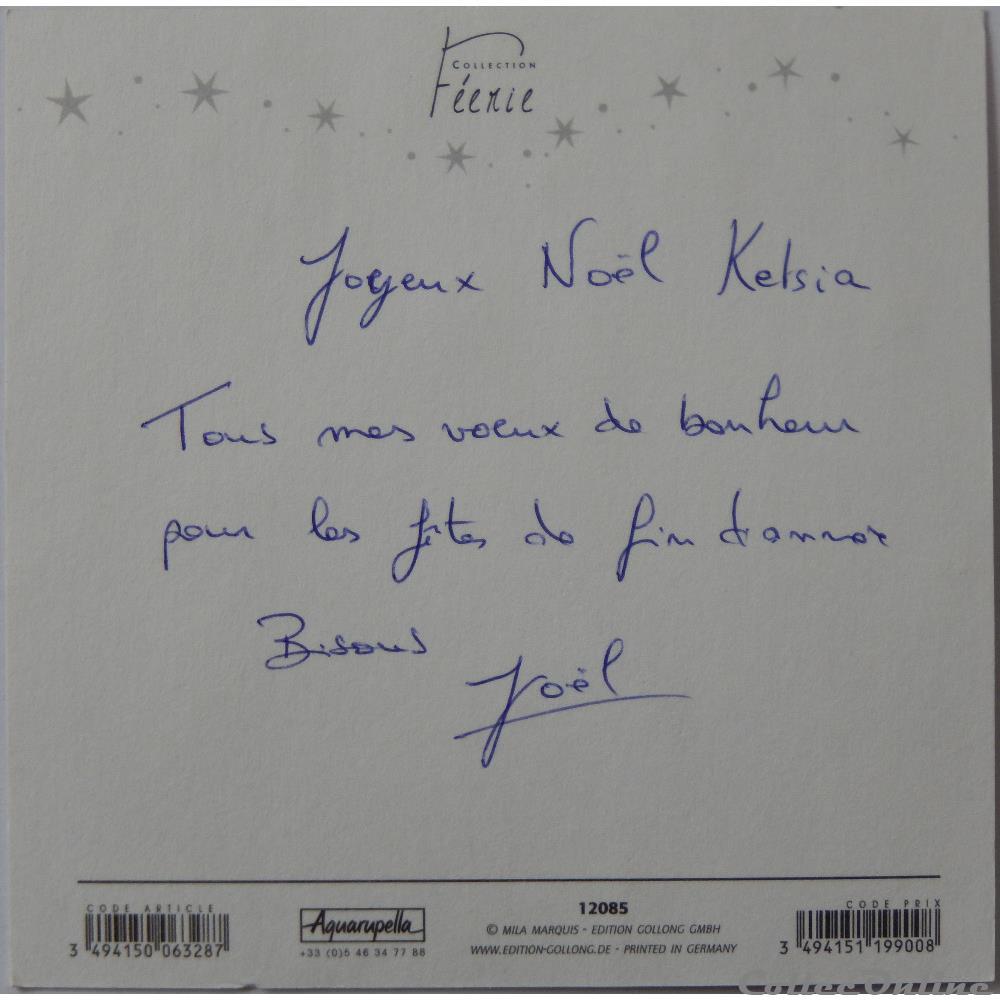 COLLECTION
Féerie
Joyeux Noël Kelsia
Tous mes voeux de bonheur
pour les fêtes de fin d'année
Bisous
Joël
CODE ARTICLE
3 494150 063287
Aquarupella
+33 (0)5 46 34 77 88
12085
© MILA MARQUIS - EDITION GOLLONG GMBH
WWW.EDITION-GOLLONG.DE - PRINTED IN GERMANY
CODE PRIX
3 494151 199008
Collec Online